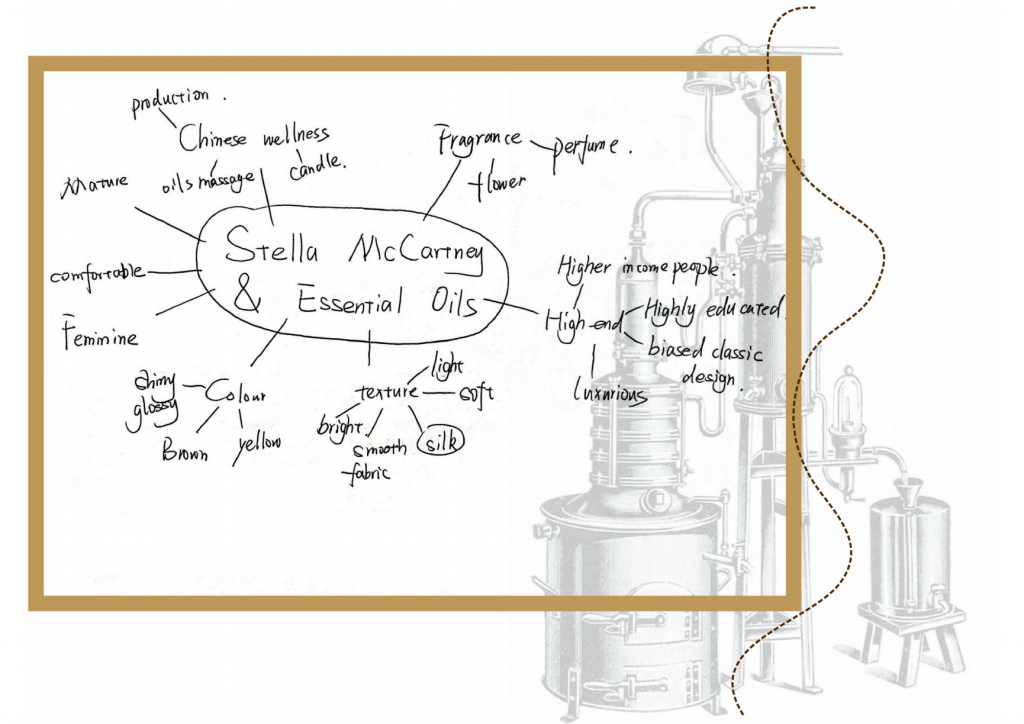 production .
Chinese wellness
candle.
oils massage
Fragrance
perfume .
flower
Mature
comfortable
Feminine
Stella McCartney
& Essential Oils
Higher income people .
High-end
Highly educated.
biased classic
design.
luxurious
Colour
shiny
glossy
Brown
yellow
texture
light
soft
bright.
smooth
fabric
silk